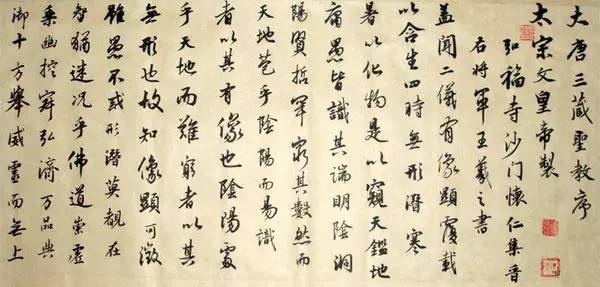 大唐三藏聖教序
太宗文皇帝製
弘福寺沙门懷仁集晉
右將軍王羲之書
蓋聞二儀有像顯覆載
以含生四時無形潛寒
暑以化物是以窺天鑑地
庸愚皆識其端明陰洞
陽賢哲罕窮其數然而
天地苞乎陰陽而易識
者以其有像也陰陽處
乎天地而難窮者以其
無形也故知像顯可徵
雖愚不惑形潛莫覩在
智猶迷況乎佛道崇虛
乘幽控寂弘濟万品典
御十方舉威靈而無上